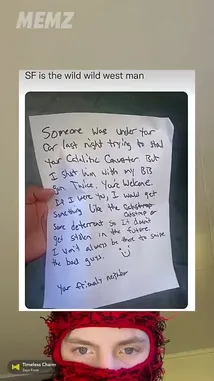 MEMZ
SF is the wild wild west man
Someone was under your
car last night trying to steal
your Catalitic Converter But
I shot him with my BB
Gun Twice. You're Welcome.
If I were you, I would get
something like the Catstrap
Catstrap or
some deterrent so it doesn't
get stolen in the future.
I won't always be there to snipe
the bad guys.
Your friendly neighbor
Timeless Charm